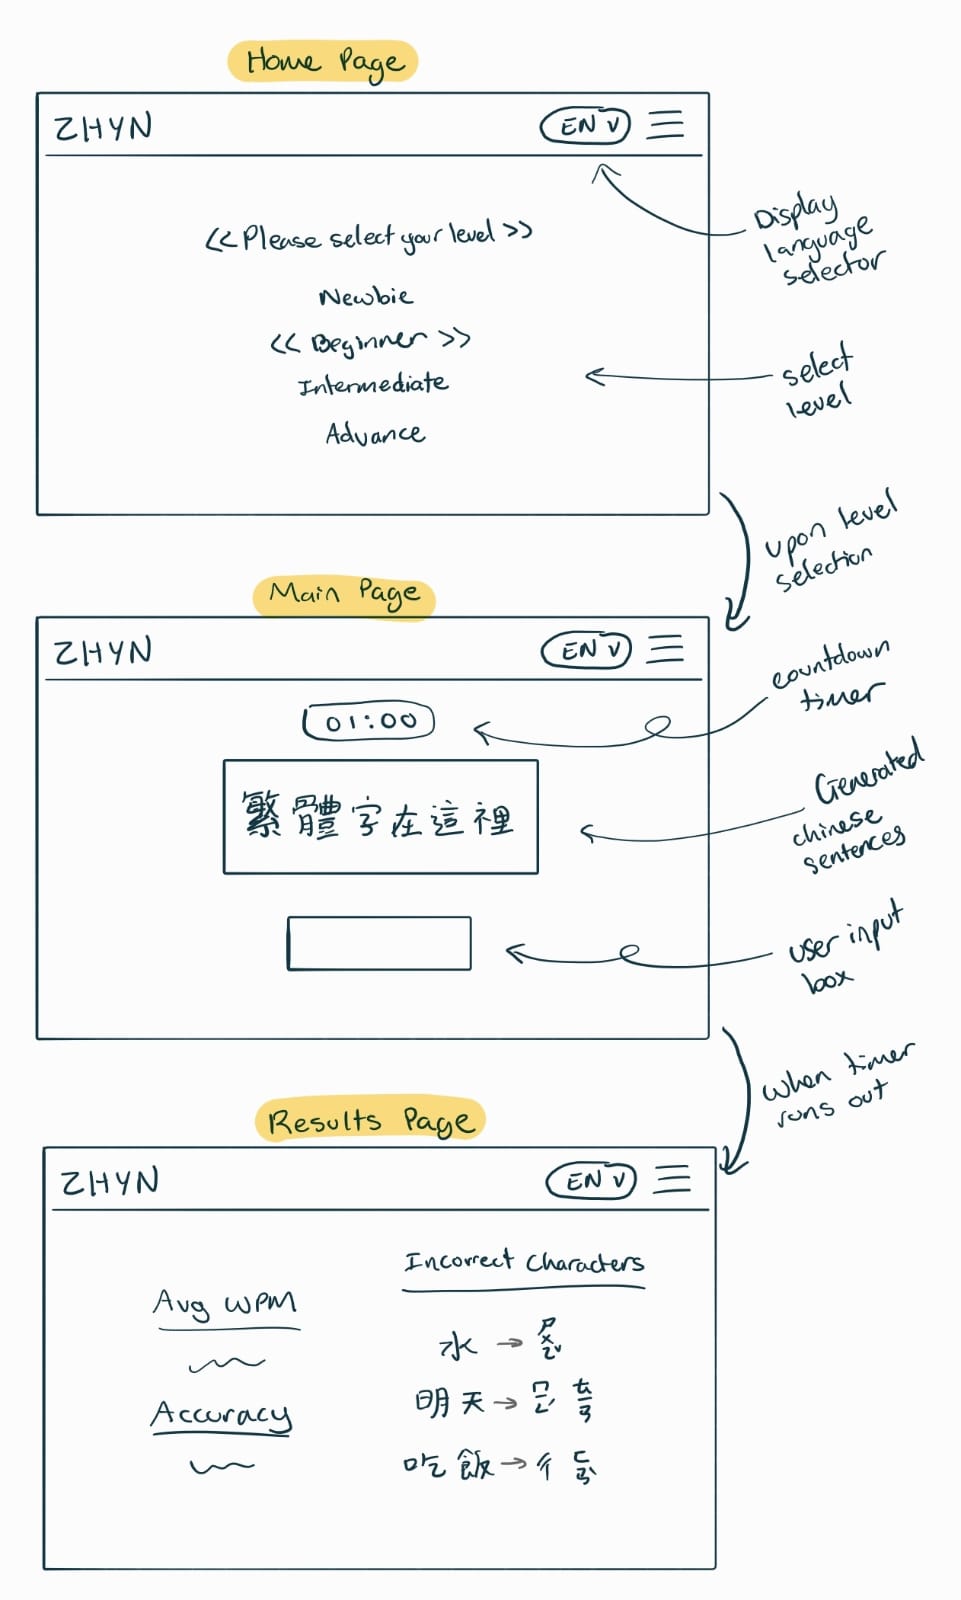 Home Page
ZHYN
EN V
<<Please select your level>>
Newbie
<< Beginner >>
Intermediate
Advance
Display
language
selector
select
level
upon level
selection
Main Page
ZHYN
EN V
01:00
繁體字在這裡
countdown
timer
Generated
chinese
sentences
user input
box
when timer
runs out
Results Page
ZHYN
EN V
Avg WPM
Accuracy
Incorrect Characters
水 →
明天 →
吃飯 →